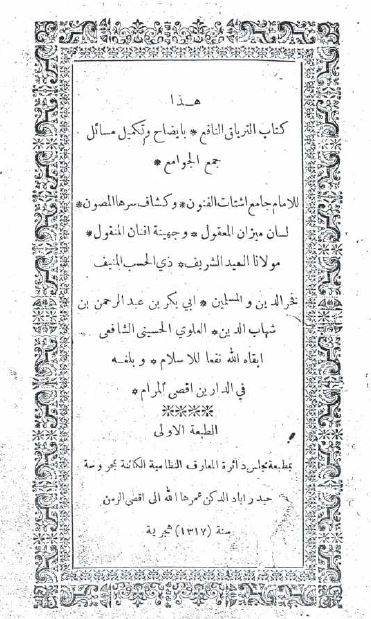 هذا
كتاب الترياق النافع * بايضاح وتكميل مسائل
جمع الجوامع *
للامام جامع اشتات الفنون * وكشاف سرها المصون *
لسان ميزان المعقول * وجهينة افنان المنقول *
مولانا السيد الشريف * ذي الحسب المنيف
فخر الدين والمسلمين * ابي بكر بن عبد الرحمن بن
شهاب الدين * العلوي الحسيني الشافعي
ابقاه الله نفعا للاسلام * وبلغه
في الدارين اقصى المرام *
الطبعة الاولى
بمطبعة مجلس دائرة المعارف النظامية الكائنة بمحروسة
حيدراباد الدكن عمرها الله الى اقصى الزمن
سنة (١٣١٧) هجرية